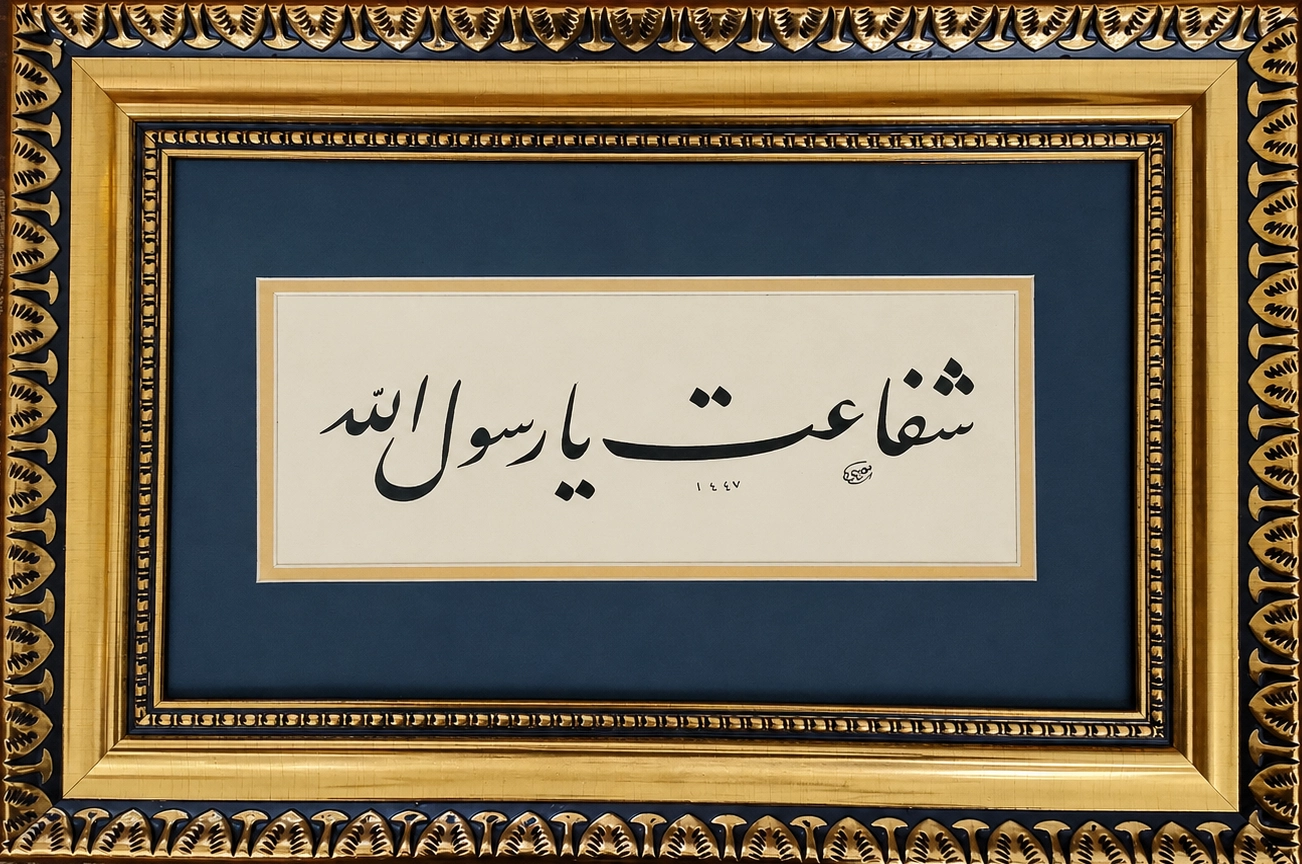 شفاعت يا رسول الله
١٤٤٧